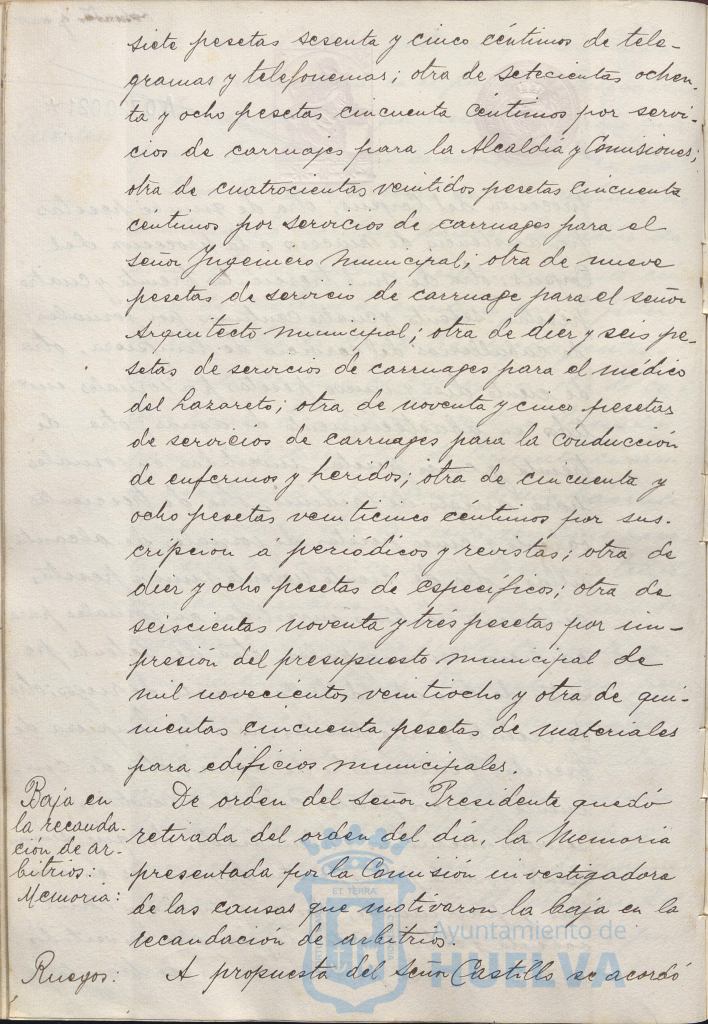 siete pesetas sesenta y cinco céntimos de tele-
gramas y telefonemas; otra de setecientas ochen-
ta y ocho pesetas cincuenta céntimos por servi-
cios de carruajes para la Alcaldía y Comisiones;
otra de cuatrocientas veintidos pesetas cincuenta
céntimos por servicios de carruages para el
señor Ingeniero Municipal; otra de nueve
pesetas de servicio de carruage para el señor
Arquitecto municipal; otra de diez y seis pe-
setas de servicios de carruages para el médico
del Lazareto; otra de noventa y cinco pesetas
de servicios de carruages para la conducción
de enfermos y heridos; otra de cincuenta y
ocho pesetas veinticinco céntimos por sus-
cripcion á periódicos y revistas; otra de
diez y ocho pesetas de específicos; otra de
seiscientas noventa y tres pesetas por im-
presión del presupuesto municipal de
mil novecientos veintiocho y otra de qui-
nientas cincuenta pesetas de materiales
para edificios municipales.
Baja en
la recauda-
ción de ar-
bitrios:
Memoria:
De orden del señor Presidente quedó
retirada del orden del día, la Memoria
presentada por la Comisión investigadora
de las causas que motivaron la baja en la
recaudación de arbitrios.
Ruegos:
A propuesta del señor Castillo se acordó
ET TERRA
Ayuntamiento de
HUELVA